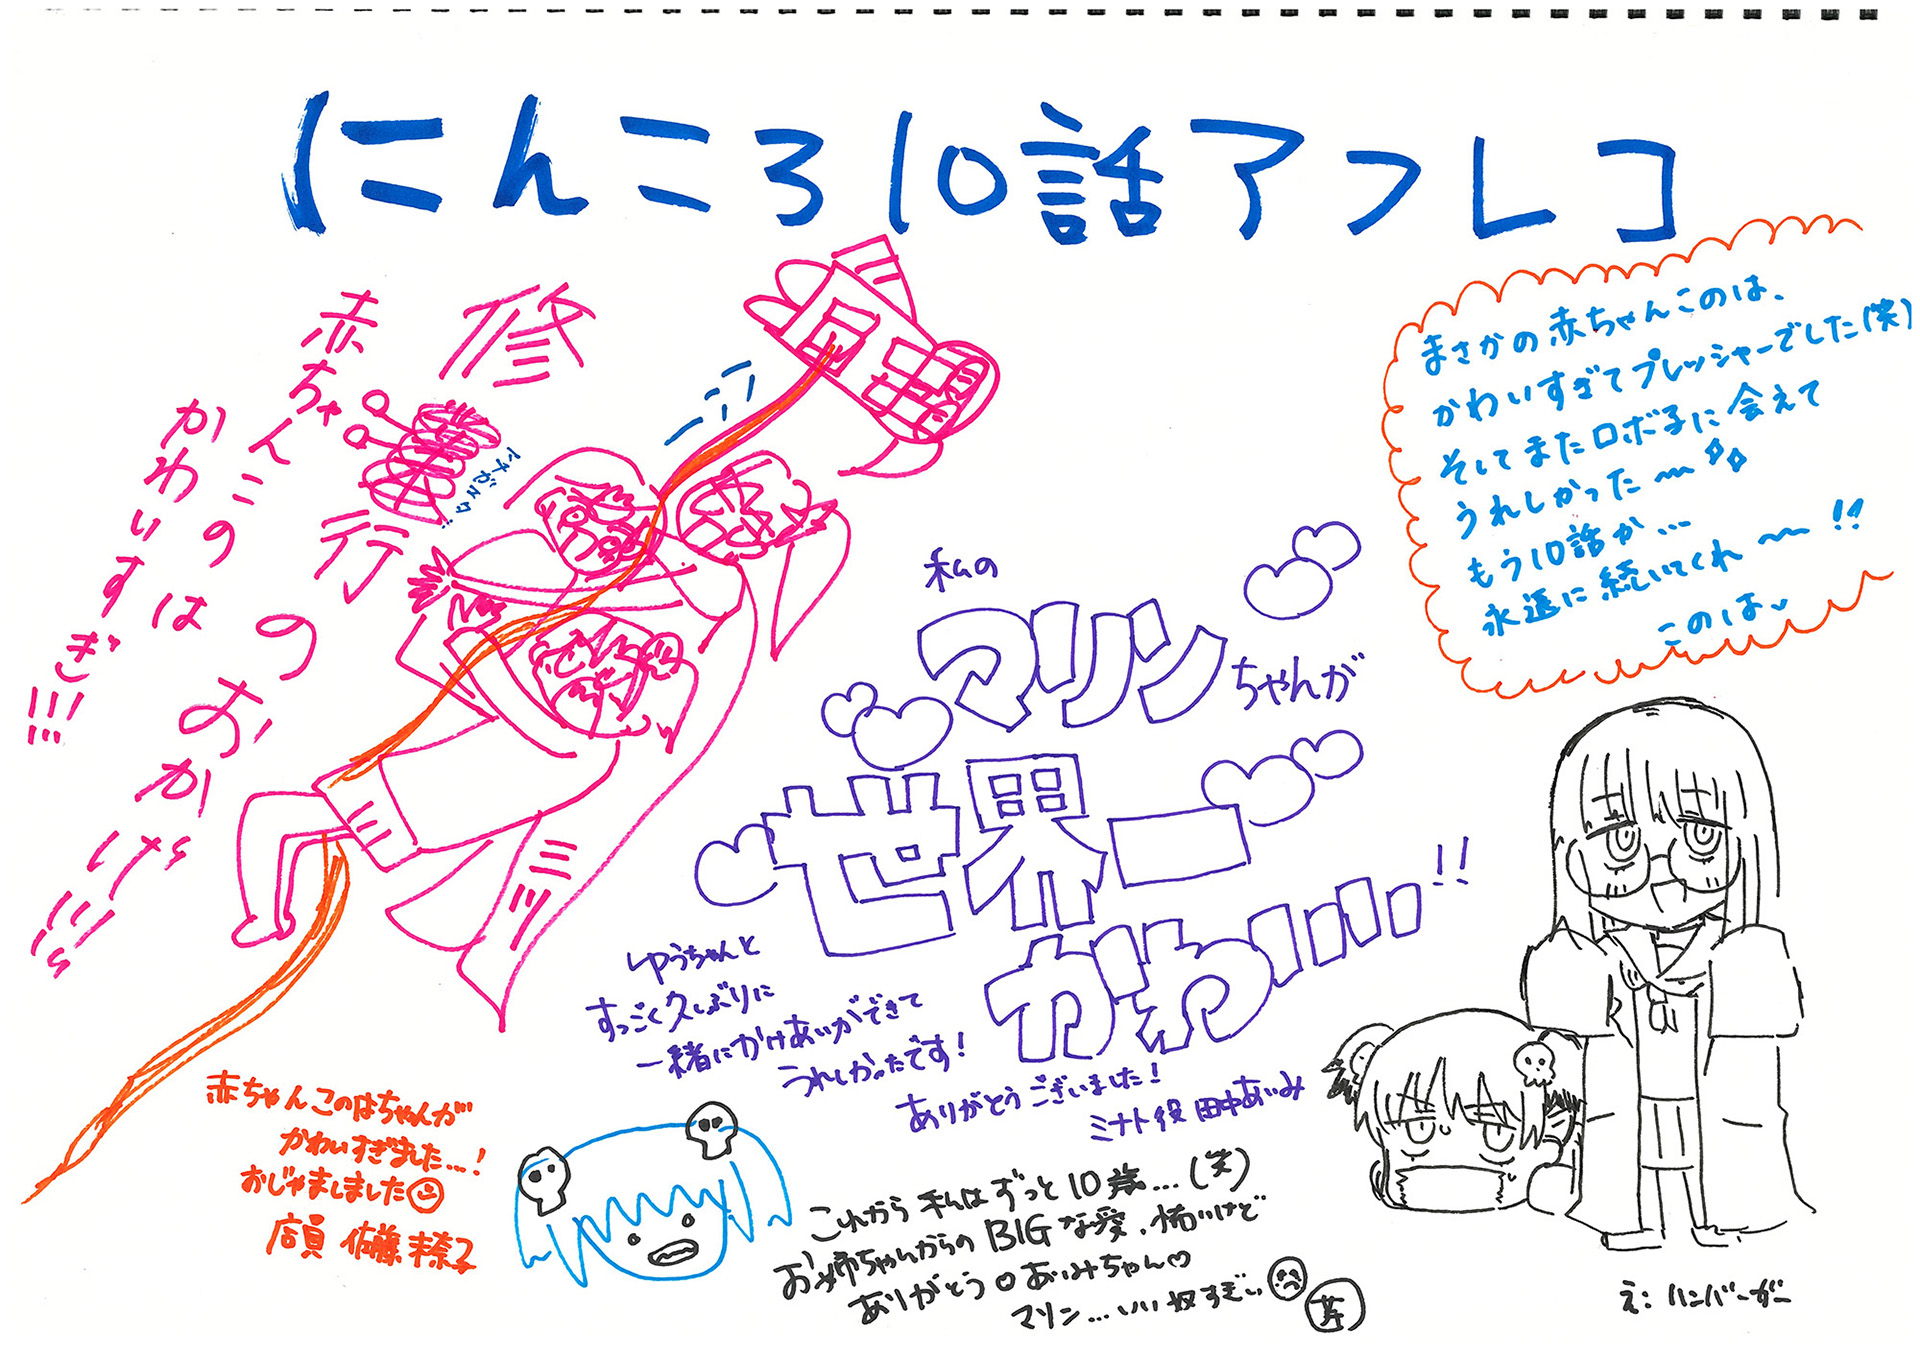 にんころ10話アフレコ
修業の
行
のおかげ!!!
赤ちゃんこのは
かわいすぎ!!!
三ツ
まさかの赤ちゃんこのは、
かわいすぎてプレッシャーでした(笑)
そしてまたロボ子に会えて
うれしかった〜〜
もう10話か…
永遠に続いてくれ〜〜!!
このは
私の
マリンちゃんが
世界一
かわいいい!!
ゆうちゃんと
すっごく久しぶりに
一緒にかけあいができて
うれしかったです!
ありがとうございました!
ミナト役 田中あいみ
赤ちゃんこのはちゃんが
かわいすぎました…!
おじゃましました
店員 佐藤
これから私はずっと10歳…(笑)
お姉ちゃんからのBIGな愛、怖いけど
ありがとう♡あいみちゃん♡
マリン…いい奴すぎぃ
芹
え:ハンバーガー